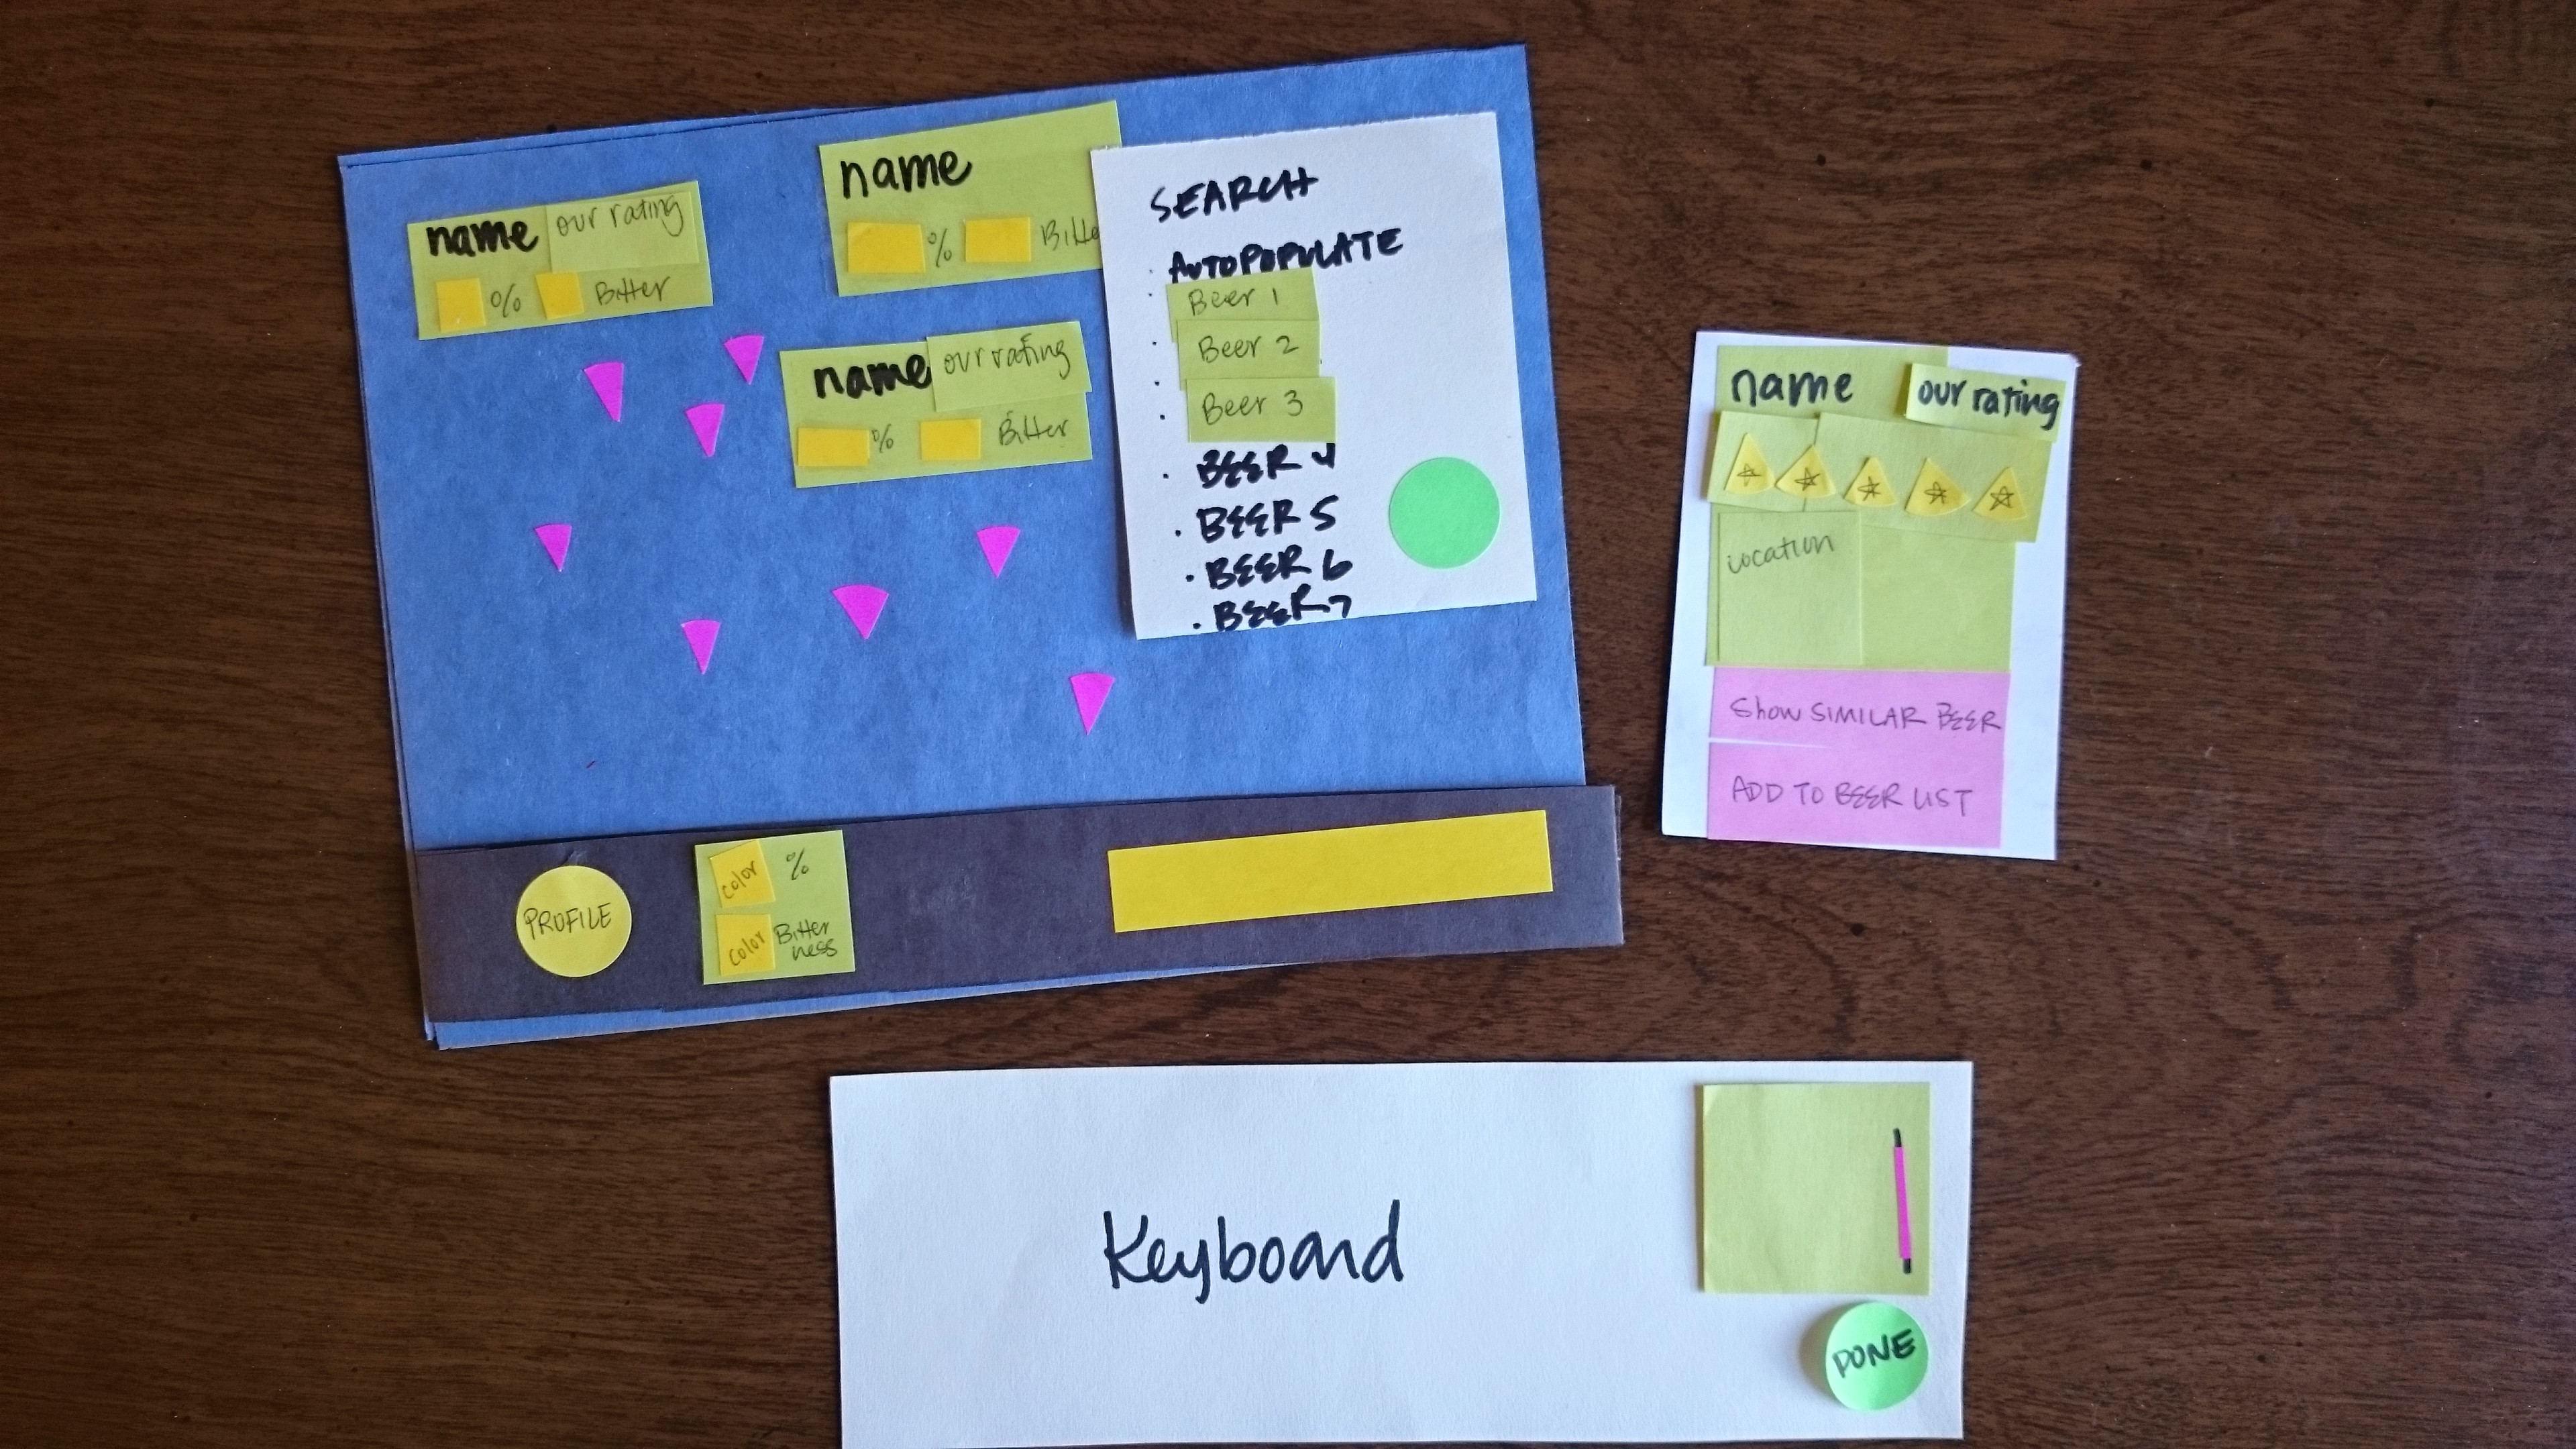 name our rating
% Bitter
name
% Bitte
name our rating
% Bitter
SEARCH
· AUTOPOPULATE
· Beer 1
· Beer 2
· Beer 3
· BEER 4
· BEER 5
· BEER 6
· BEER 7
PROFILE
color %
color Bitter
ness
name our rating
Location
Show SIMILAR BEER
ADD TO BEER LIST
Keyboard
DONE